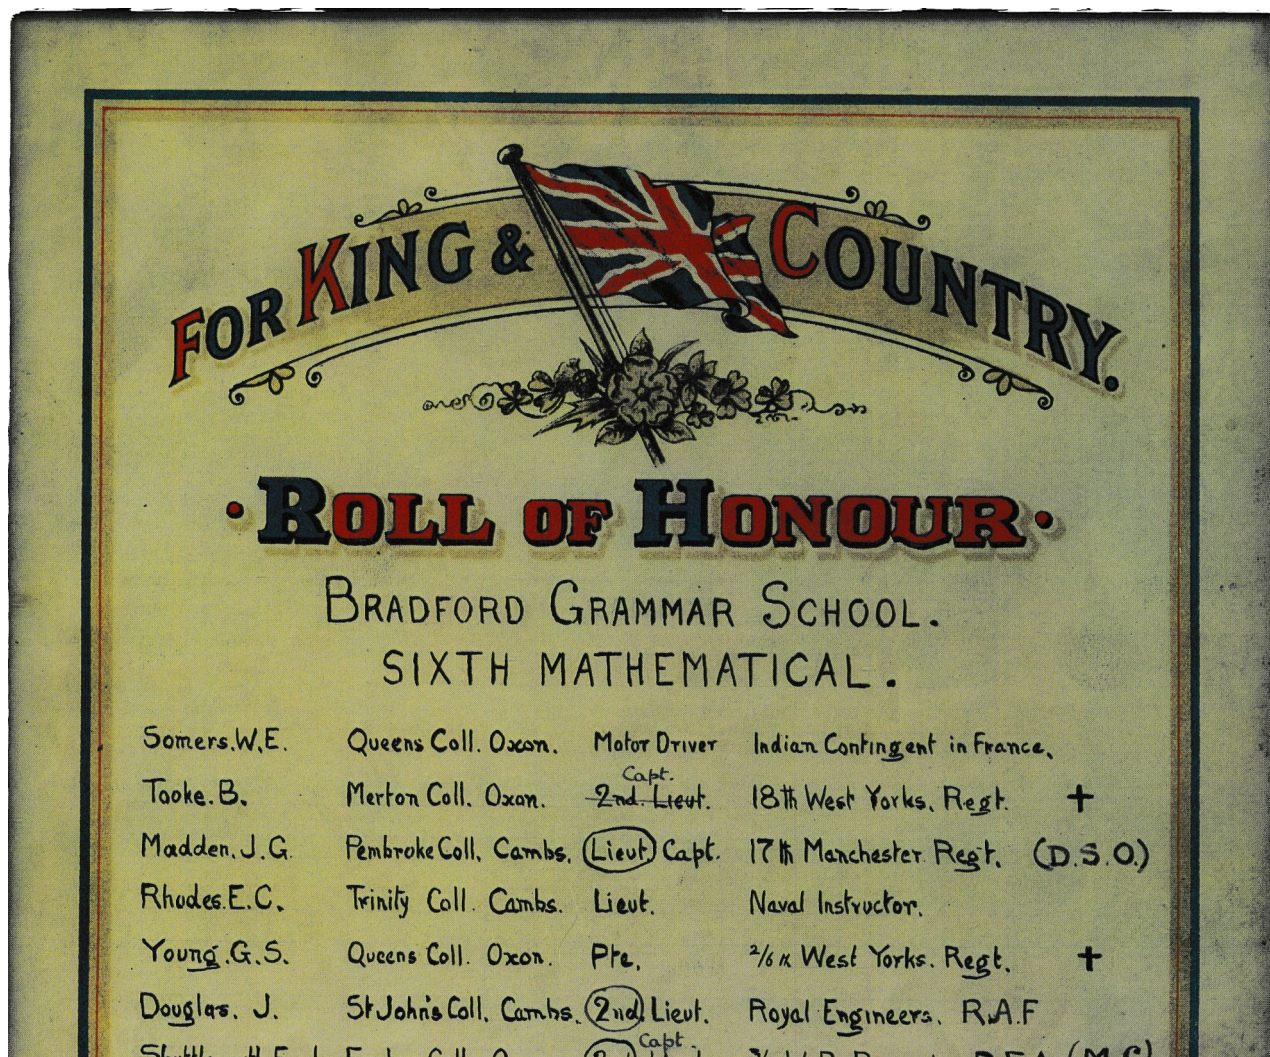 FOR KING & COUNTRY.
ROLL OF HONOUR
BRADFORD GRAMMAR SCHOOL.
SIXTH MATHEMATICAL.
Somers. W.E. Queens Coll. Oxon. Motor Driver Indian Contingent in France.
Capt.
Tooke. B. Merton Coll. Oxon. 2nd. Lieut. 18th West Yorks. Regt. +
Madden. J.G. Pembroke Coll. Cambs. Lieut. Capt. 17th Manchester Regt. (D.S.O.)
Rhodes. E.C. Trinity Coll. Cambs. Lieut. Naval Instructor.
Young. G.S. Queens Coll. Oxon. Pte. 2/6th West Yorks. Regt. +
Douglas. J. St John's Coll. Cambs. 2nd Lieut. Royal Engineers. R.A.F
Capt.
(M.C.)